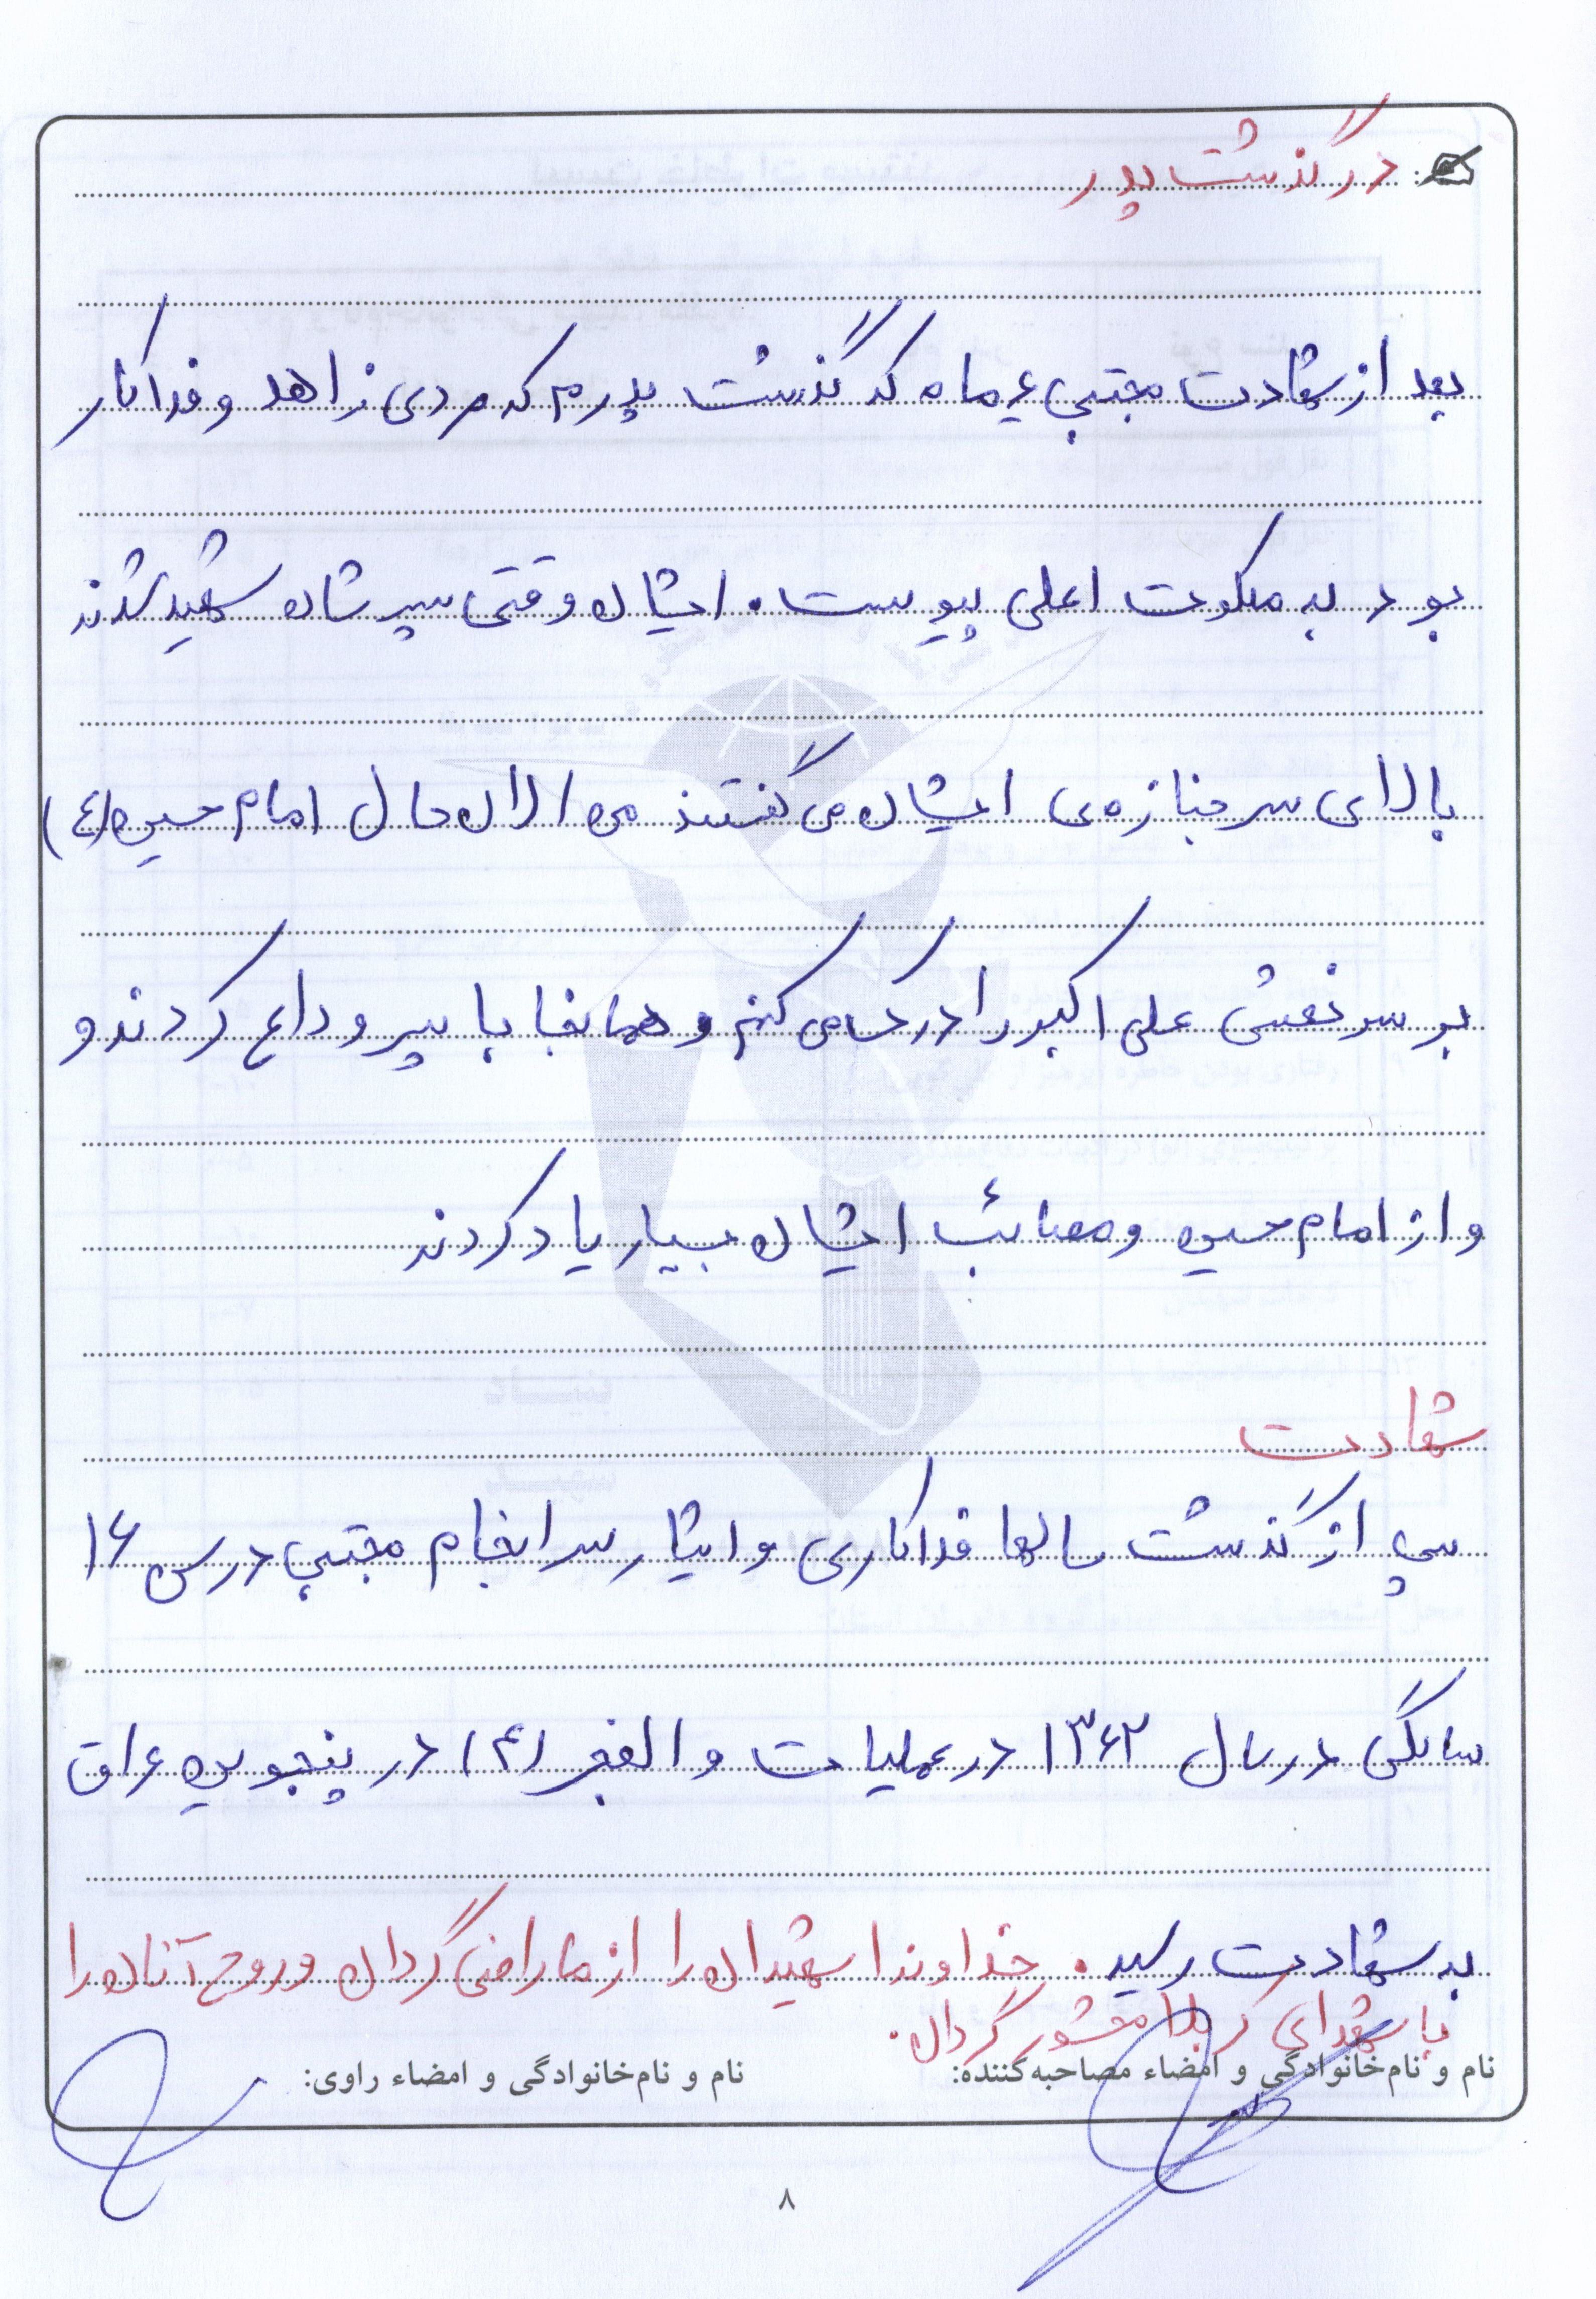 درگذشت پدر
بعد از شهادت مجتبی ۶ ماه که گذشت پدرم که مردی زاهد و فداکار
بود به ملکوت اعلی پیوست. ایشان وقتی پسرشان شهید شدند
بالای سر جنازه‌ی ایشان می گفتند من الان حال امام حسین (ع)
بر سر نعش علی اکبر را درک می کنم و همانجا با پسر وداع کردند و
و از امام حسین و مصائب ایشان بسیار یاد کردند
شهادت
پس از گذشت سالها فداکاری و ایثار سرانجام مجتبی در سن ۱۶
سالگی در سال ۱۳۶۲ در عملیات والفجر (۴) در پنجوین عراق
به شهادت رسید. خداوندا شهیدان را از ما راضی گردان و روح آنان را
با شهدای کربلا محشور گردان.
نام و نام‌خانوادگی و امضاء مصاحبه‌کننده: نام و نام‌خانوادگی و امضاء راوی:
۸